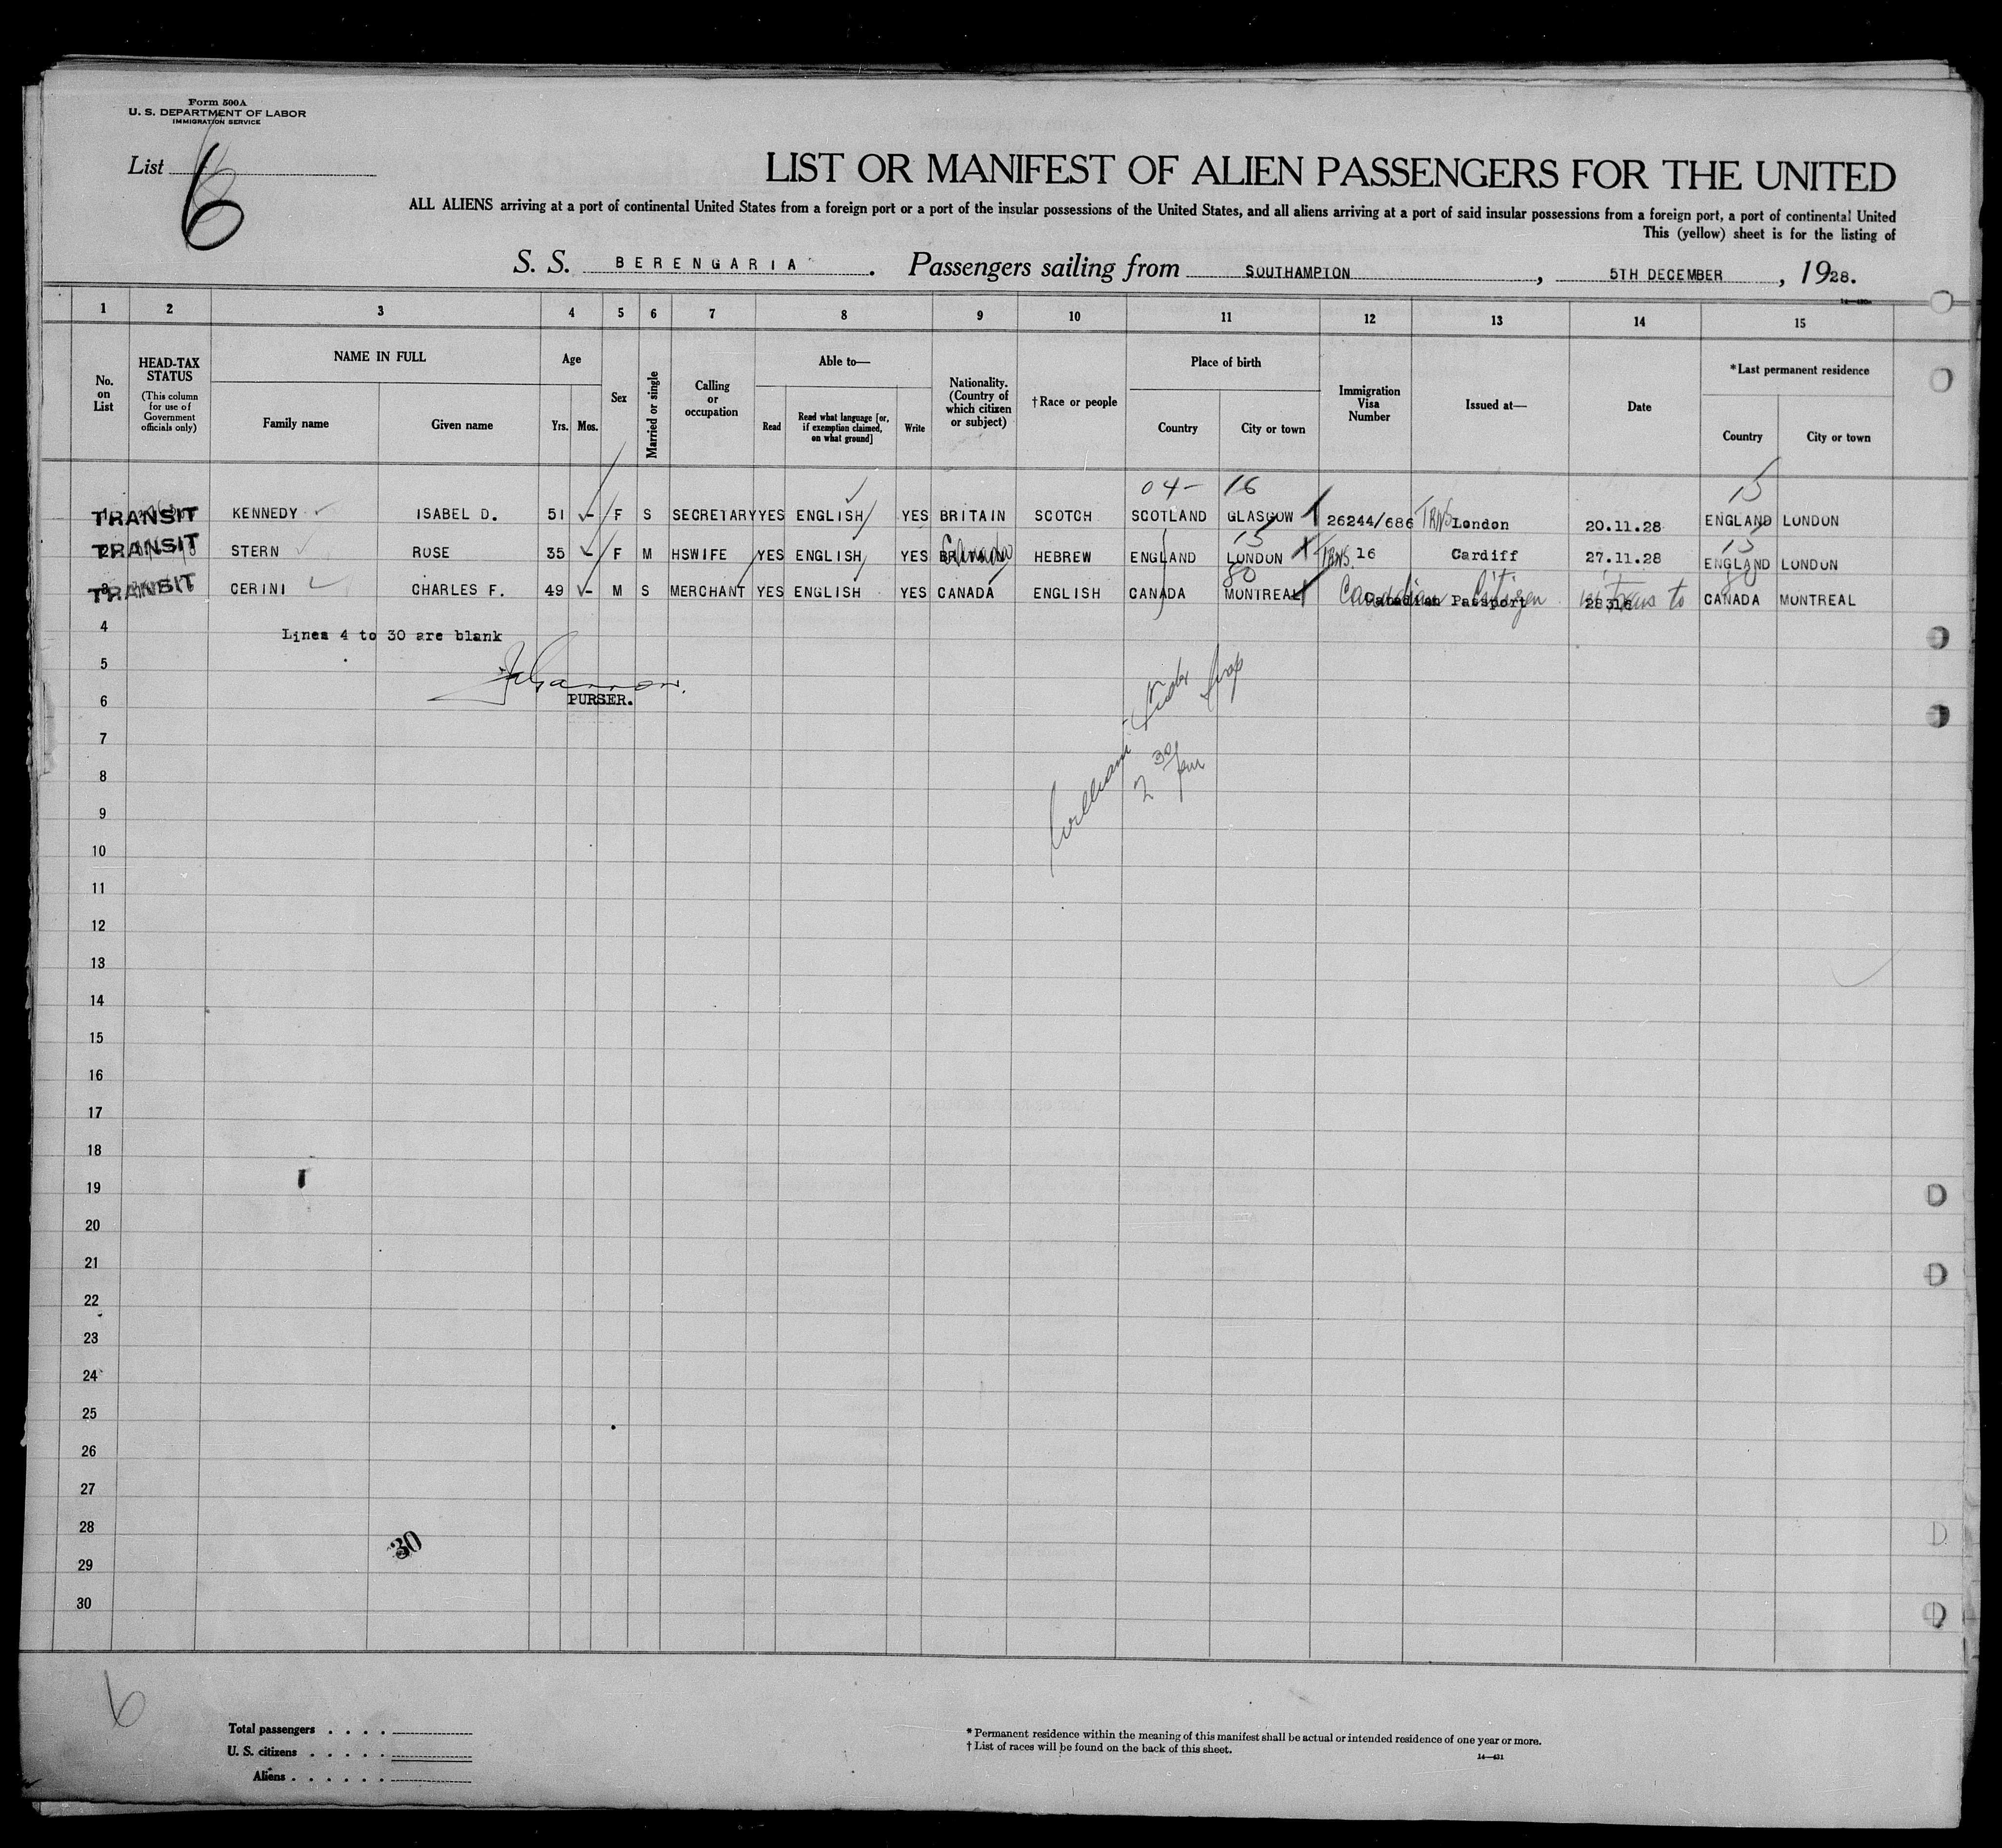 Form 500A
U. S. DEPARTMENT OF LABOR
IMMIGRATION SERVICE
List 6
LIST OR MANIFEST OF ALIEN PASSENGERS FOR THE UNITED
ALL ALIENS arriving at a port of continental United States from a foreign port or a port of the insular possessions of the United States, and all aliens arriving at a port of said insular possessions from a foreign port, a port of continental United
This (yellow) sheet is for the listing of
S. S. BERENGARIA. Passengers sailing from SOUTHAMPTON, 5TH DECEMBER, 1928.
1 2 3 4 5 6 7 8 9 10 11 12 13 14 15
No. on List
HEAD-TAX STATUS (This column for use of Government officials only)
NAME IN FULL
Family name Given name
Age
Yrs. Mos.
Sex
Married or single
Calling or occupation
Able to—
Read
Read what language [or, if exemption claimed, on what ground]
Write
Nationality. (Country of which citizen or subject)
†Race or people
Place of birth
Country City or town
Immigration Visa Number
Issued at—
Date
*Last permanent residence
Country City or town
04- 16 15
TRANSIT KENNEDY ISABEL D. 51 F S SECRETARY YES ENGLISH YES BRITAIN SCOTCH SCOTLAND GLASGOW 26244/686 TRNS London 20.11.28 ENGLAND LONDON
15 15
TRANSIT STERN ROSE 35 F M HSWIFE YES ENGLISH YES BRITAIN Canada HEBREW ENGLAND LONDON TRNS 16 Cardiff 27.11.28 ENGLAND LONDON
80 80
TRANSIT CERINI CHARLES F. 49 M S MERCHANT YES ENGLISH YES CANADA ENGLISH CANADA MONTREAL Canadian Citizen in Trans to CANADA MONTREAL
Canadian Passport 28316
4 Lines 4 to 30 are blank
5
6 PURSER.
7
8
9
10
11
12
13
14
15
16
17
18
19
20
21
22
23
24
25
26
27
28
29
30
30
6
Total passengers
U. S. citizens
Aliens
* Permanent residence within the meaning of this manifest shall be actual or intended residence of one year or more.
† List of races will be found on the back of this sheet.
14—431